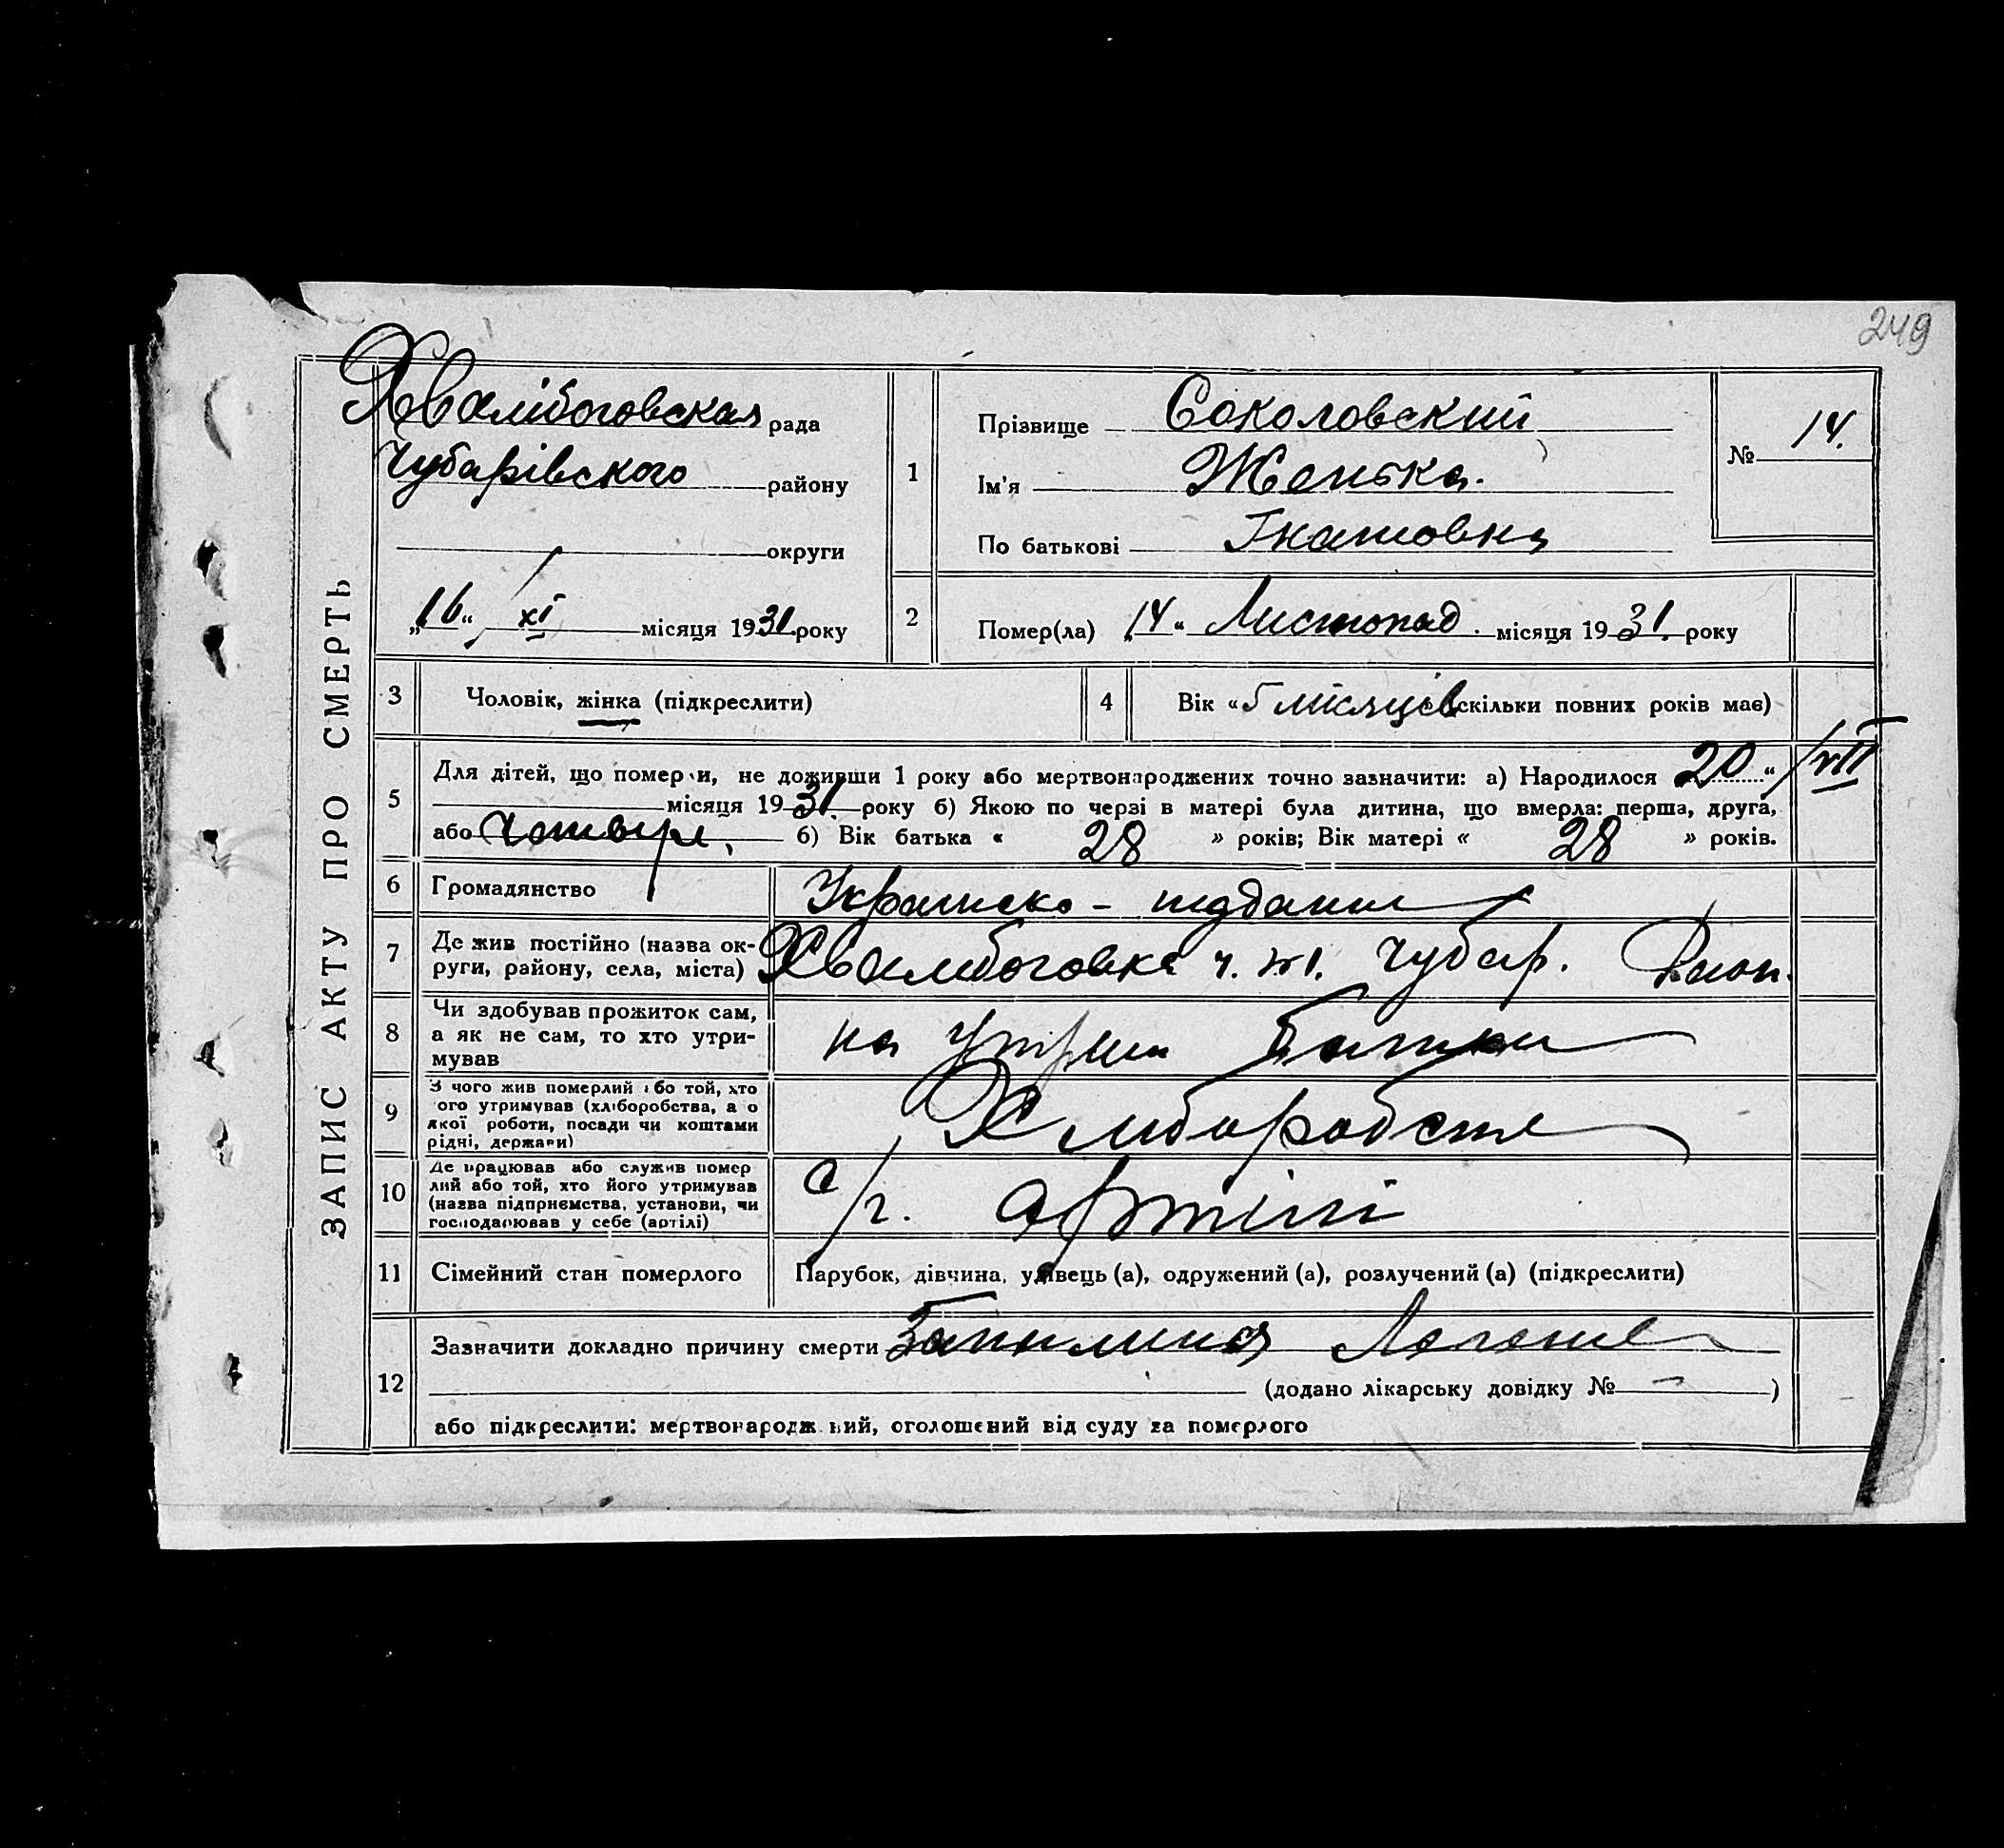 249
ЗАПИС АКТУ ПРО СМЕРТЬ
Хвалібоговская рада
Чубарівського району
округи
„16“ XI місяця 1931 року
1
Прізвище Соколовский
Ім’я Женька.
По батькові Гнатовна
№ 14.
2
Помер(ла) „14“ Листопад. місяця 1931. року
3
Чоловік, жінка (підкреслити)
4
Вік « місяців скільки повних років має)
5
Для дітей, що померли, не доживши 1 року або мертвонароджених точно зазначити: а) Народилося 20 “ /VII
місяця 1931. року б) Якою по черзі в матері була дитина, що вмерла: перша, друга,
або б) Вік батька « 28 » років; Вік матері « 28 » років.
6
Громадянство
7
Де жив постійно (назва ок-
руги, району, села, міста)
Хвалібоговка Чубар. Район.
8
Чи здобував прожиток сам,
а як не сам, то хто утри-
мував
на утрим батьки
9
З чого жив померлий або той, хто
ого утримував (хліборобства, а о
якої роботи, посади чи коштами
рідні, держави)
10
Де працював або служив помер
лий або той, хто його утримував
(назва підприємства, установи, чи
господарював у себе (артілі)
с/г. артілі
11
Сімейний стан померлого
Парубок, дівчина, удівець (а), одружений (а), розлучений (а) (підкреслити)
12
Зазначити докладно причину смерти
(додано лікарську довідку № — )
або підкреслити: мертвонароджений, оголошений від суду за померлого